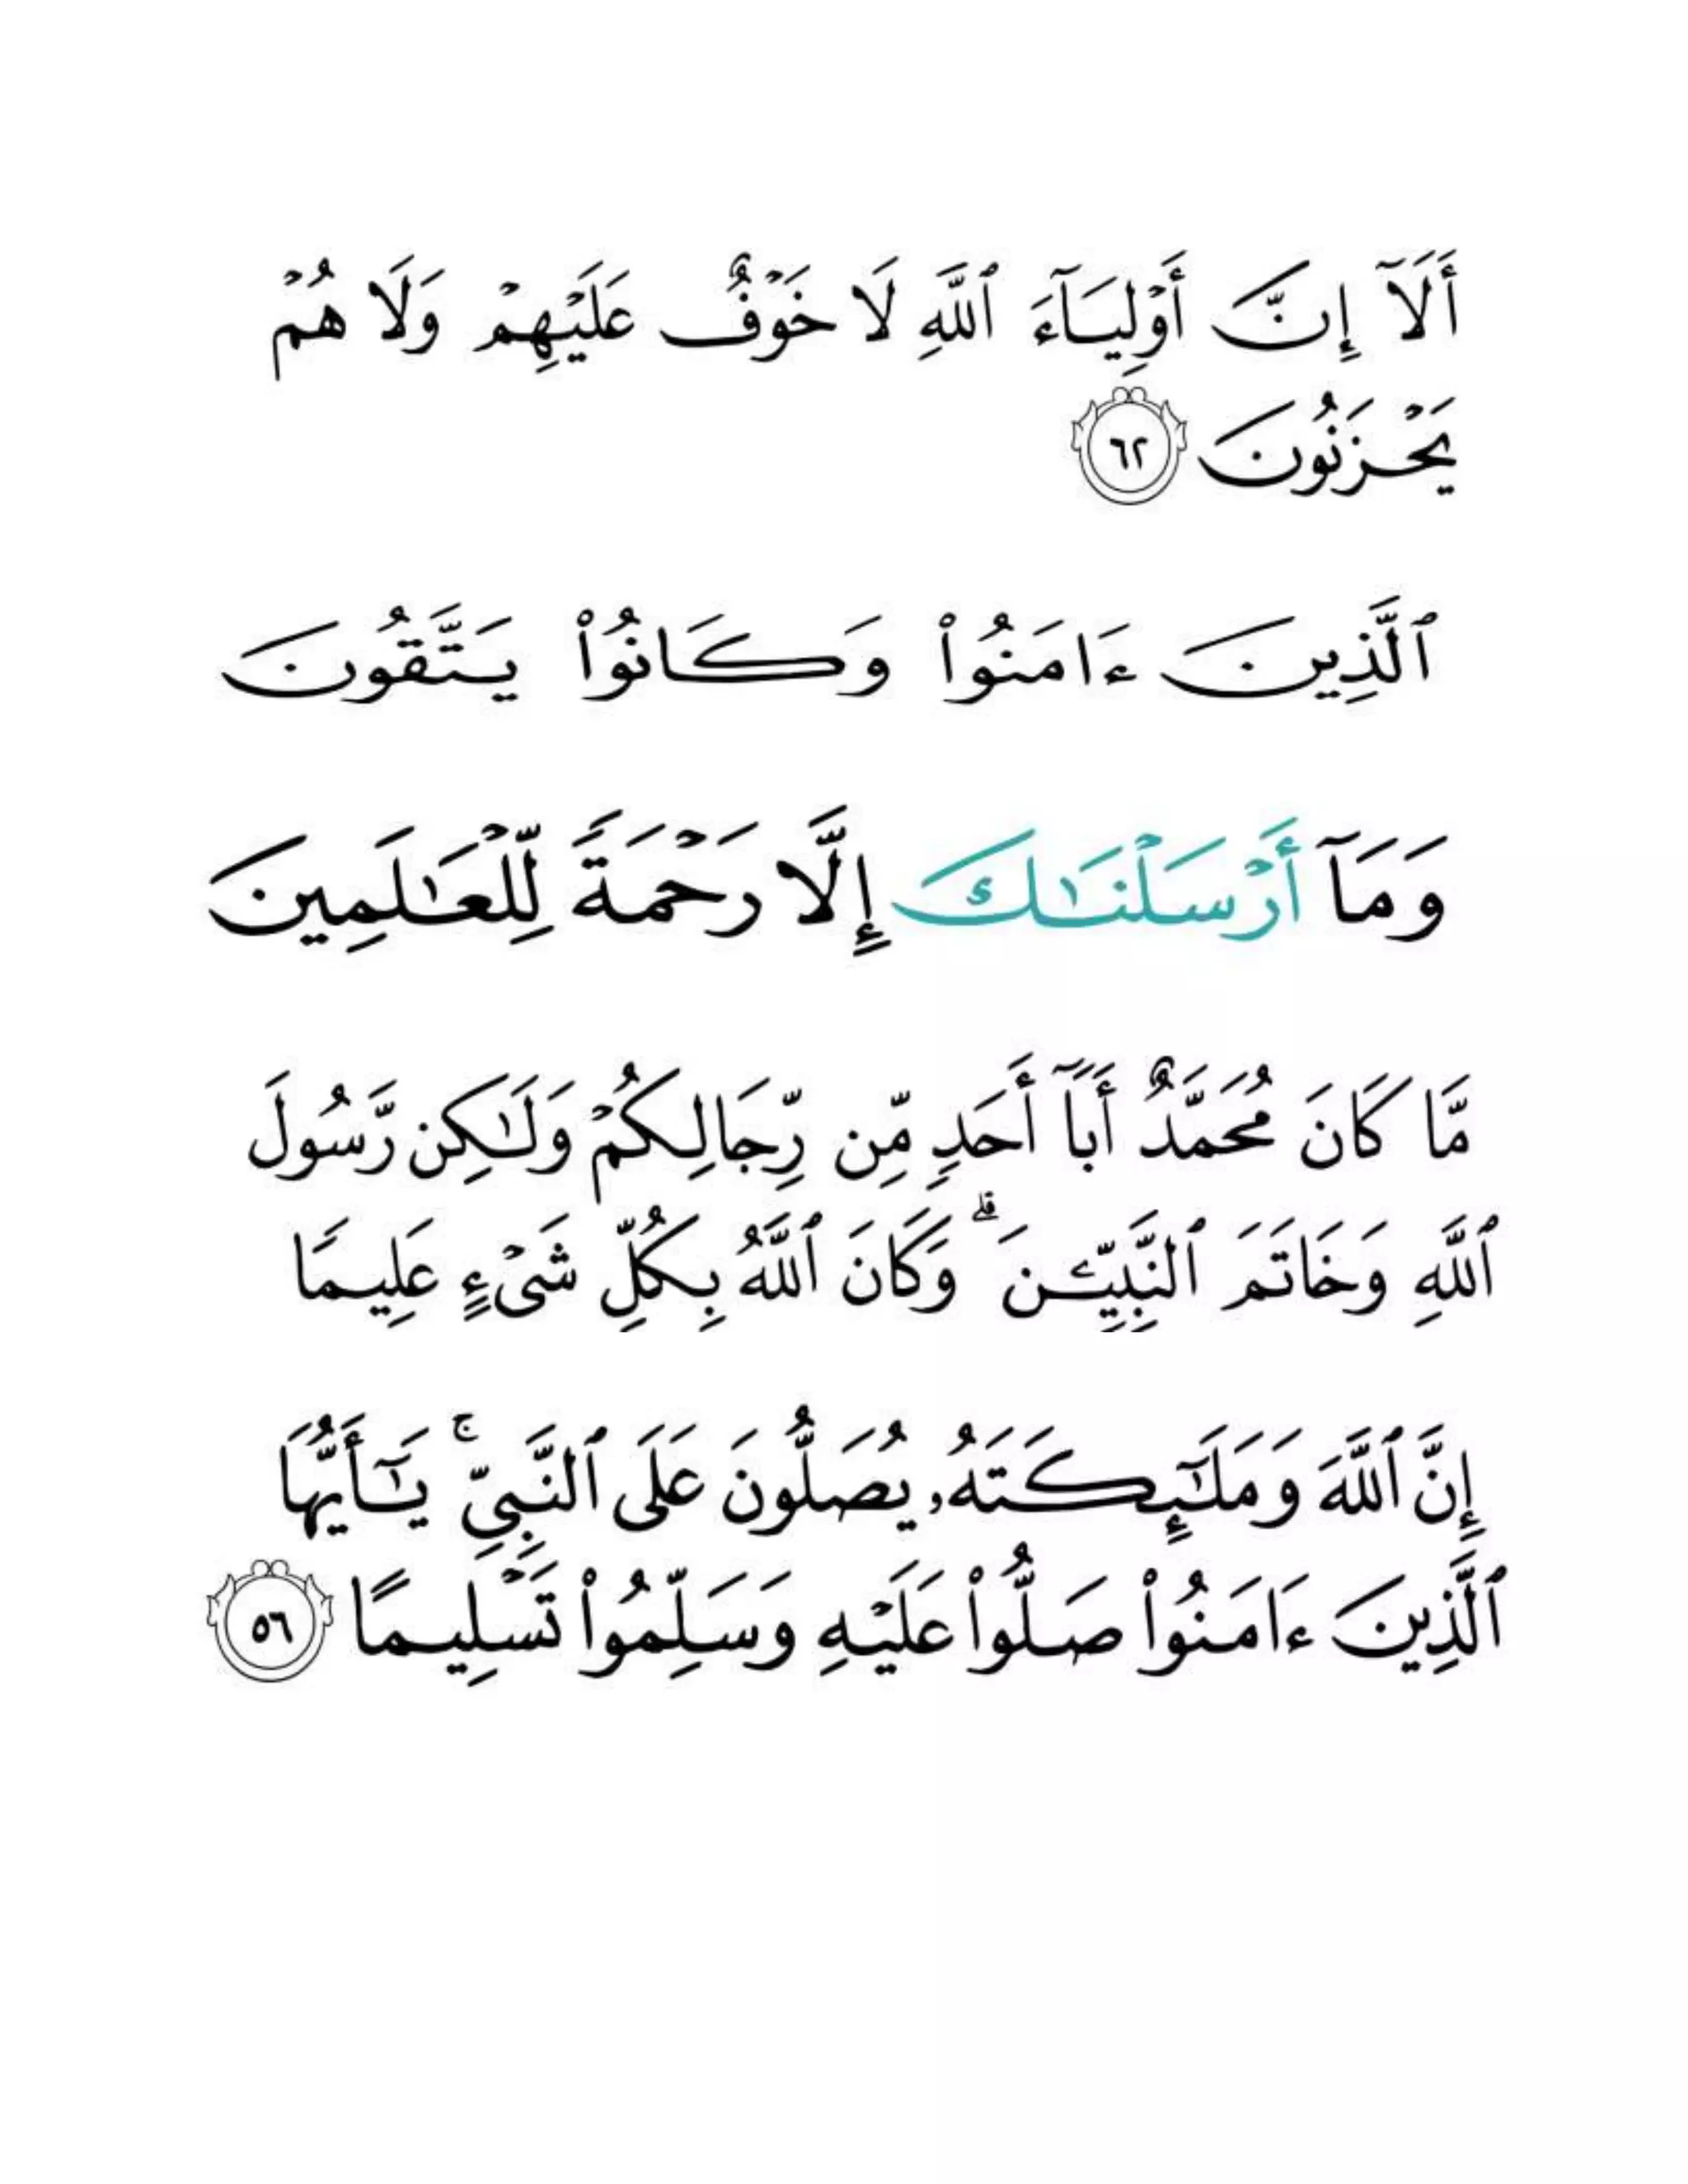 أَلَآ إِنَّ أَوْلِيَآءَ ٱللَّهِ لَا خَوْفٌ عَلَيْهِمْ وَلَا هُمْ
يَحْزَنُونَ ٦٢
ٱلَّذِينَ ءَامَنُوا۟ وَكَانُوا۟ يَتَّقُونَ
وَمَآ أَرْسَلْنَـٰكَ إِلَّا رَحْمَةً لِّلْعَـٰلَمِينَ
مَّا كَانَ مُحَمَّدٌ أَبَآ أَحَدٍ مِّن رِّجَالِكُمْ وَلَـٰكِن رَّسُولَ
ٱللَّهِ وَخَاتَمَ ٱلنَّبِيِّـۧنَ ۗ وَكَانَ ٱللَّهُ بِكُلِّ شَىْءٍ عَلِيمًا
إِنَّ ٱللَّهَ وَمَلَـٰٓئِكَتَهُۥ يُصَلُّونَ عَلَى ٱلنَّبِىِّ ۚ يَـٰٓأَيُّهَا
ٱلَّذِينَ ءَامَنُوا۟ صَلُّوا۟ عَلَيْهِ وَسَلِّمُوا۟ تَسْلِيمًا ٥٦